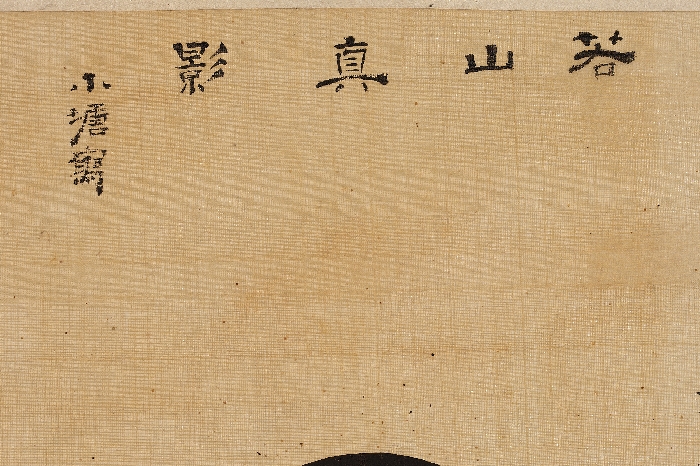 若山真影
小塘寫